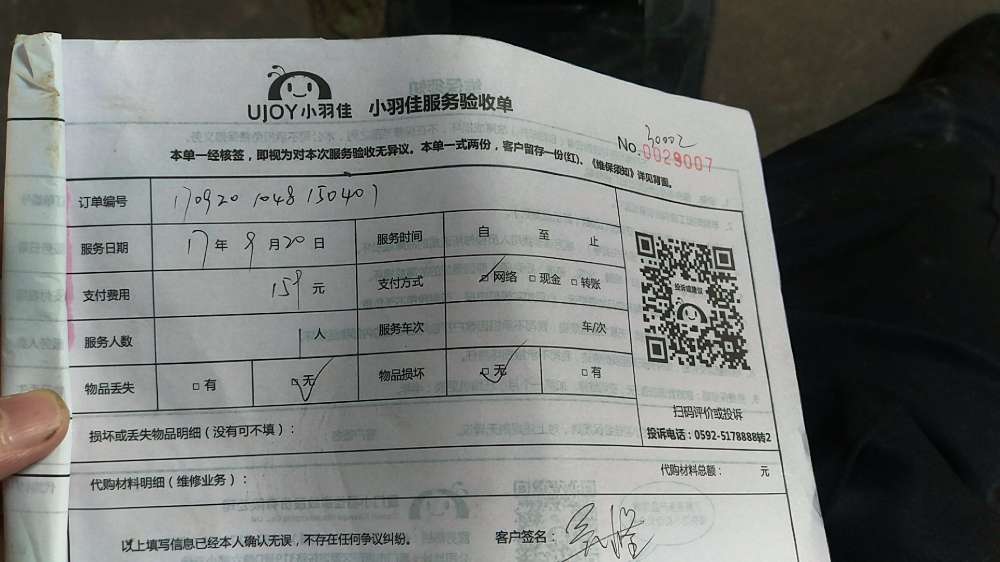 UJOY小羽佳 小羽佳服务验收单
30002
No.0029007
本单一经核签，即视为对本次服务验收无异议。本单一式两份，客户留存一份(红)、《维保须知》详见背面。
订单编号 170920 1048 150407
服务日期 17年9月20日 服务时间 自 至 止
支付费用 159元 支付方式 网络 现金 转账
服务人数 1人 服务车次 车/次
物品丢失 有 无 物品损坏 无 有
投诉或建议
扫码评价或投诉
投诉电话：0592-5178888转2
损坏或丢失物品明细（没有可不填）：
代购材料明细（维修业务）： 代购材料总额： 元
以上填写信息已经本人确认无误，不存在任何争议纠纷。 客户签名：